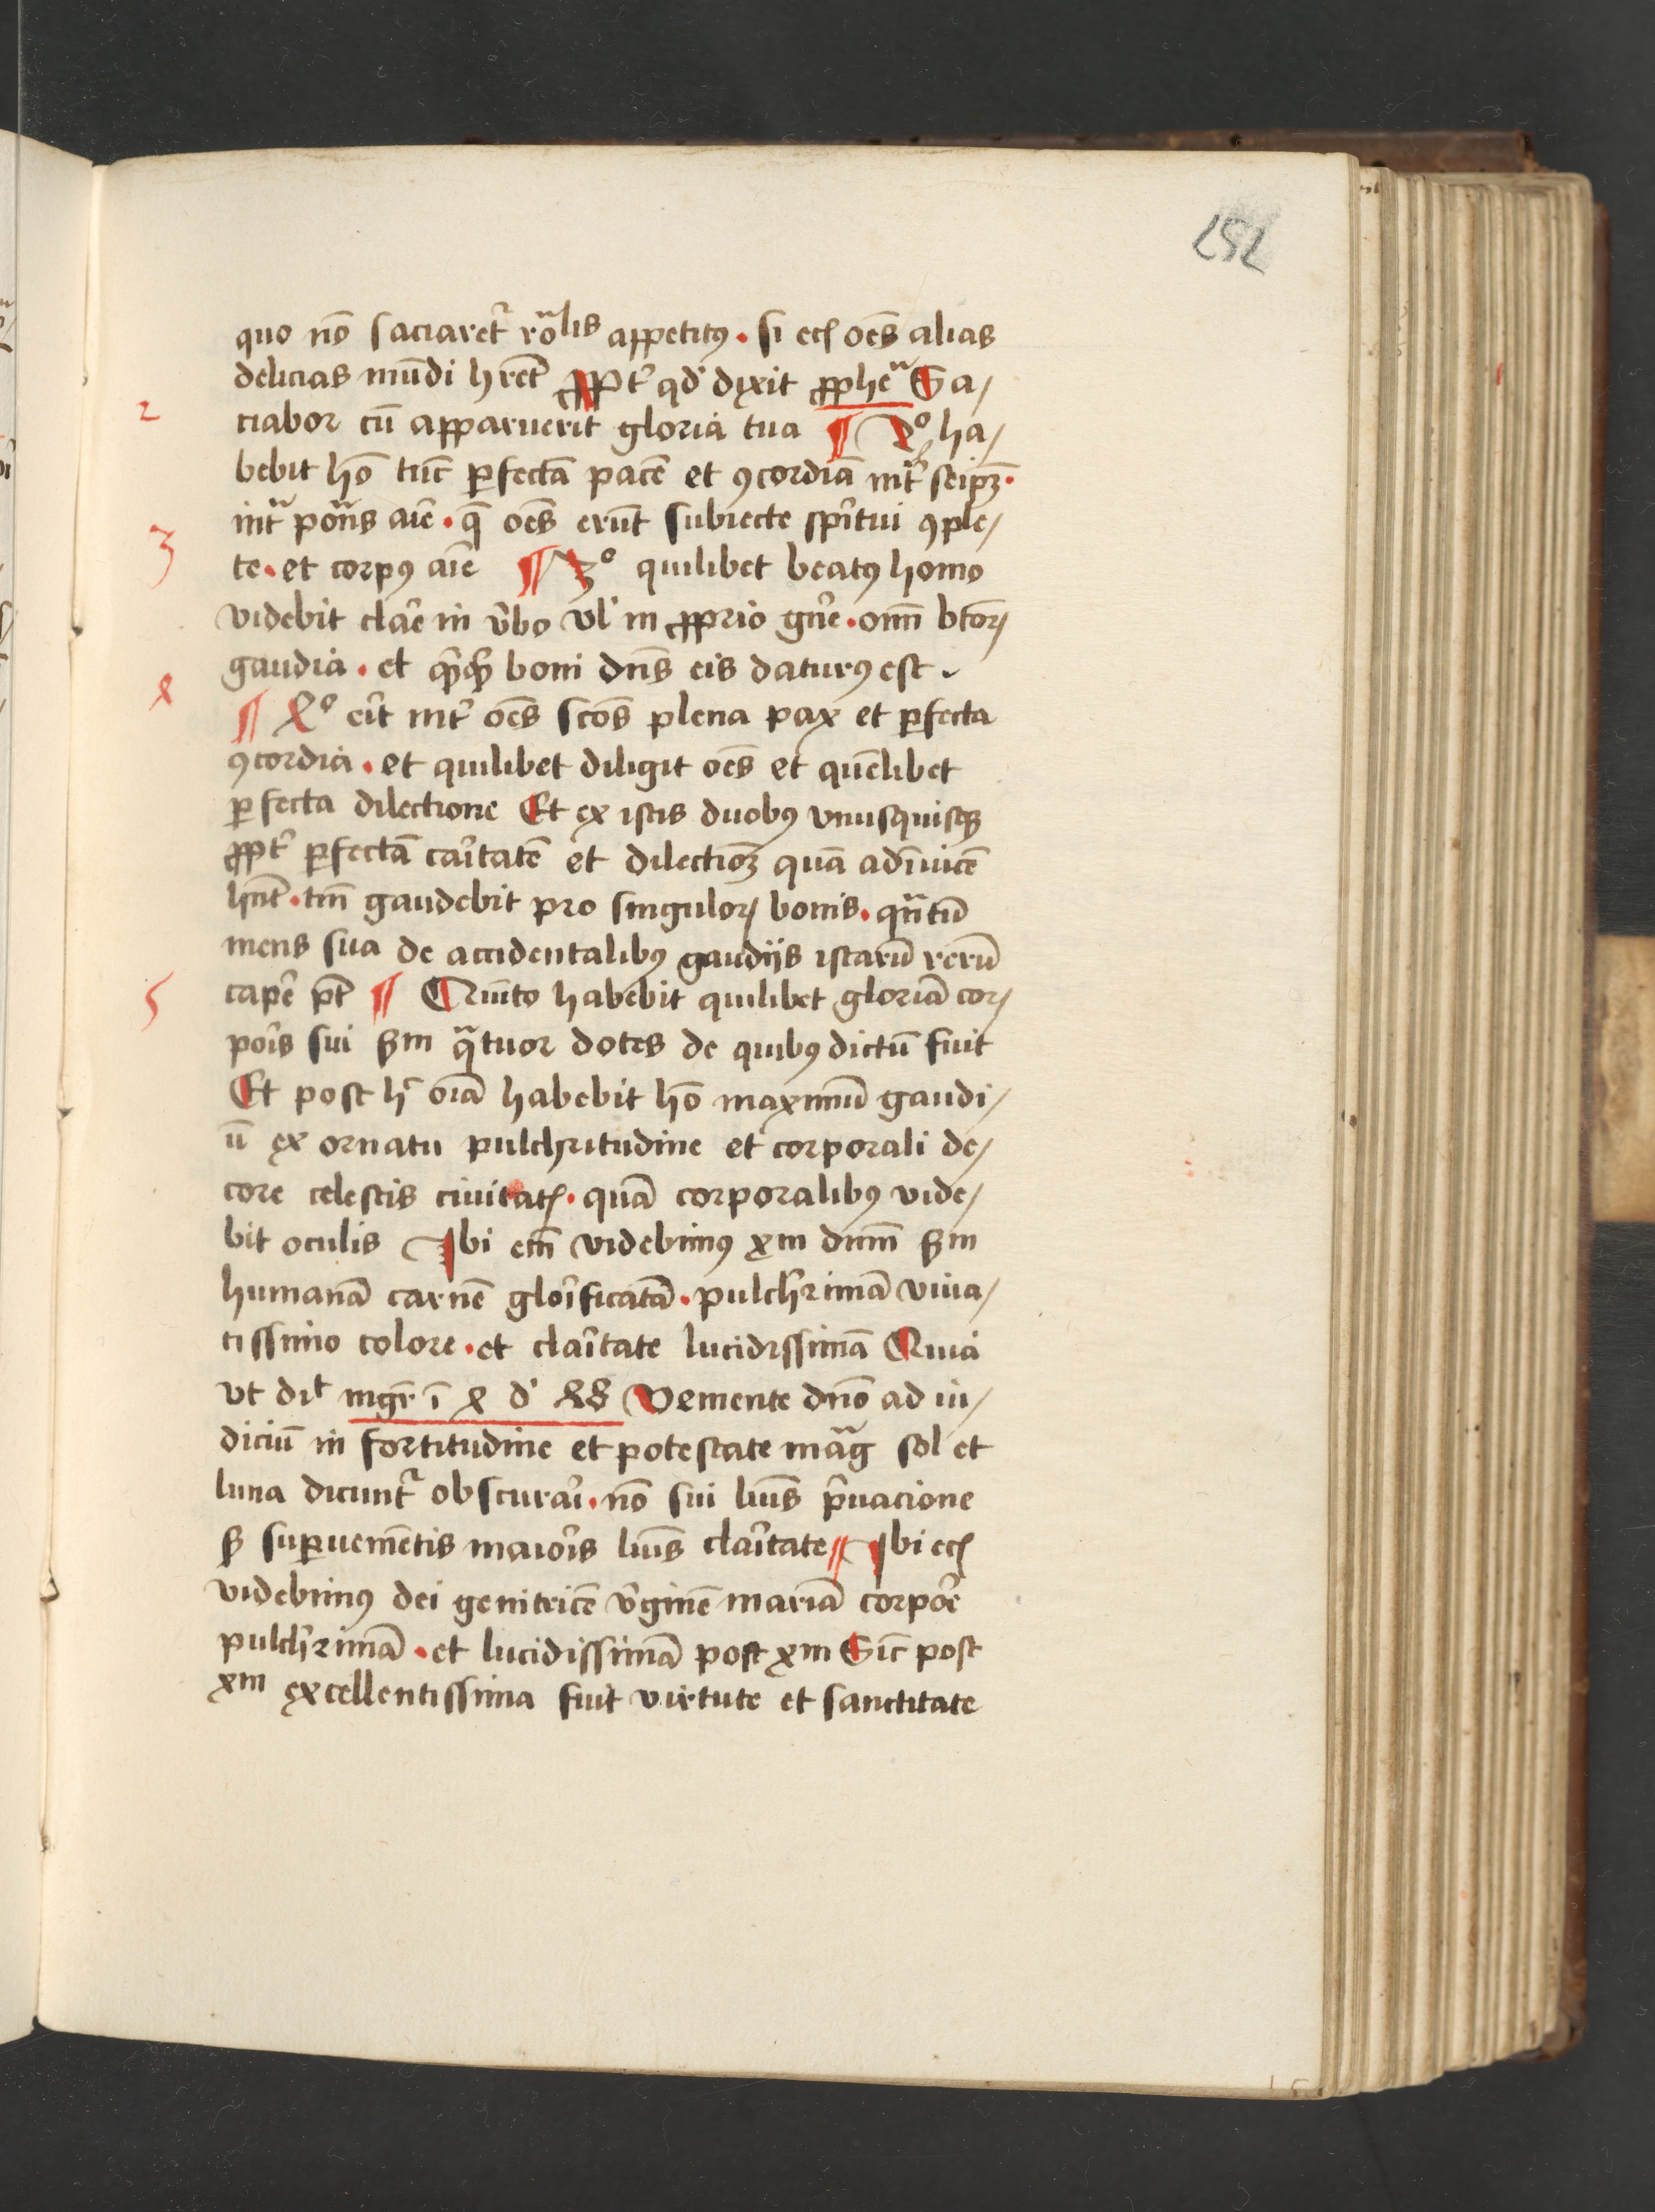 252
quo nō saciaret᷑ rōalis appetitꝰ · si ecꝭ oēs alias
delicias mūdi hr̄et ꝓpt᷑ qd' dixit ꝓphēa Sa/
2
ciabor cū apparuerit gloria tua ¶ 2º ha/
bebit hō tūc ꝑfectā pacē et ꝯcordiā int᷑ seipꝫ ·
int᷑ po᷑ns aīe · q̄ oēs erūt subiecte sp̄itui ꝯple/
3
te · et corpꝰ aīe ¶ 3º quilibet beatꝰ homo
videbit clar̄e in v̄bo vl' in ꝓprio gn̄e · om̄ btōꝝ
gaudia · et q̄cq̄ boni dn̄s eis daturꝰ est
4
¶ 4º erit int᷑ oēs scōs plena pax et ꝑfecta
ꝯcordia · et quilibet diligit oēs et quēlibet
ꝑfecta dilectione Et ex istis duobꝰ vnusquisqꝫ
ꝓpt᷑ ꝑfectā caritatē et dilectioꝫ quā adīuicē
hn̄t · tm̄ gaudebit pro singuloꝝ bonis · qn̄tū
mens sua de accidentalibꝰ gaudijs istarū rerū
5
caper̄e pt̄ ¶ Quīto habebit quilibet gloriā cor/
por̄is sui ẞm q̄tuor dotes de quibꝰ dictū fuit
Et post h̄ oīa habebit hō maximū gaudi/
ū ex ornatu pulchritudine et corporali de/
core celestis ciuitatꝭ · quā corporalibꝰ vide/
bit oculis Ibi em̄ videbimꝰ xm dnm̄ ẞm
humanā carnē glor̄ificatā · pulch᷑rimā viua/
tissimo colore · et clar̄itate lucidissimā Quia
vt dit mgr̄ ī 4 d' 48 Veniente dn̄o ad iu/
diciū in fortitudine et potestate mag᷑ sol et
luna dicunt᷑ obscurar̄i · nō sui lūis p̄uacione
ẞ suꝑueniētis maior̄is lūis clar̄itate ¶ Ibi ecꝭ
videbimꝰ dei genitricē v̄ginē mariā corpor̄e
pulch᷑rimā · et lucidissimā post xm Sic post
xm excellentissima fuit virtute et sanctitate